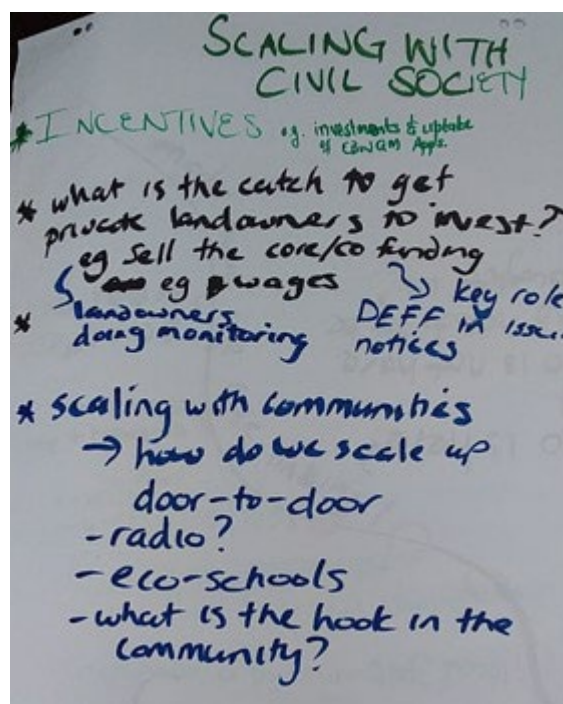 SCALING WITH
CIVIL SOCIETY
* INCENTIVES e.g. investments & uptake
of CBWQM Apps.
* what is the catch to get
private landowners to invest?
eg sell the core/co funding
eg wages
key role
* landowners
doing monitoring
DEFF in
notices
* scaling with communities
→ how do we scale up
door-to-door
- radio?
- eco-schools
- what is the hook in the
community?